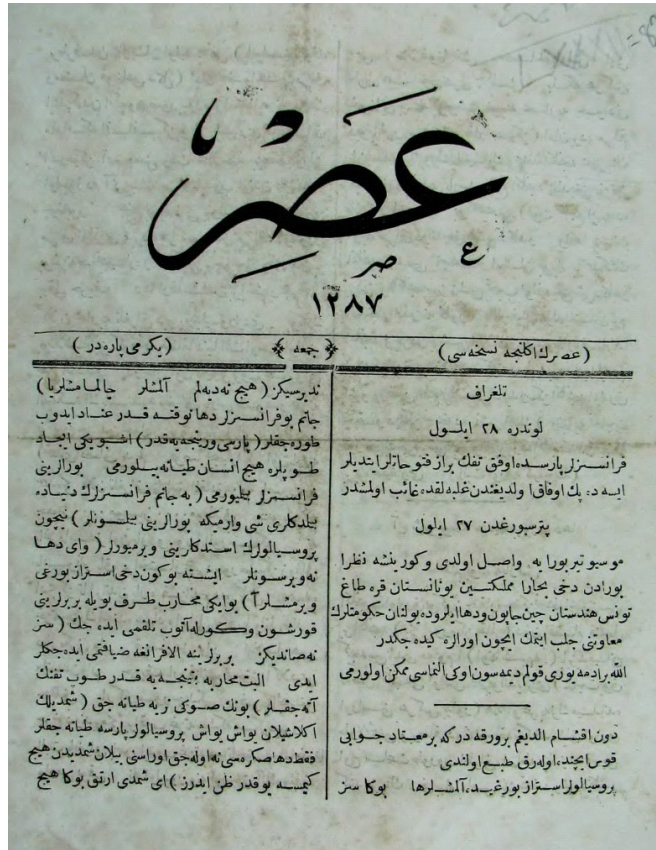 عصر
ع صر
١٢٨٧
(عصرك اكلنجه نسخه سى)
جمعه
(يكرمى پاره در)
تلغراف
لوندره ٢٨ ايلول
فرانسزلر پارسده اوفق تفك براز فتوحاتلر ايتديلر
ايسه ده پك اوفاق اولديغندن غلبه لقده غائب اولمشدر
پترسبورغدن ٢٧ ايلول
موسيو تيربورا يه واصل اولدى وكورينشه نظرا
بورادن دخى بخارا مملكتين يونانستان قره طاغ
تونس هندستان چين جاپون ودها ايلروده بولنان حكومتلرك
معاونتنى جلب ايتمك ايچون اورالره كيده جكدر
الله برادمه يورى قولم ديمه سون اوكى آلنماسى ممكن اولورمى
دون اقشام آلديغم برورقه در كه بر معتاد جوابى
قوس ايچنده اوله رق طبع اولندى
پروسيالولر استراز بورغيده آلمشلرها بوكا سز
نه ديرسيكز (هيچ نه ديه لم آلمشلر چالمامشلريا)
جانم بو فرانسزلر دها نوقته قدر عناد ايدوب
طوره جقلر (پارسى ويرنجه يه قدر) اشبو يكى ايجاد
طوپلره هيچ انسان طيانه بيلورمى بورالرينى
فرانسزلر بيليورمى (به جانم فرانسزلرك دنياده
بيلدكلرى شى وارميكه بورالرينى بيلسونلر) نيچون
پروسيالولرك استدكلرينى ويرميورلر (واى دها
نه ويرسونلر ايشته بوكون دخى استراز بورغى
ويرمشلر آ) بو ايكى محارب طرف بويله بربرلرينى
قورشون وكورله آتوب تلقمى ايده جك (سز
نه صانديكز بربرلرينه الافرانغه ضيافتمى ايده جكلر
ايدى البت محاربه بيتنجه يه قدر طوپ تفنك
آته جقلر) بونك صوكى نره يه طيانه جق (شمديلك
اكلاشيلان يواش يواش پروسيالولر پارسه طيانه جقلر
فقط دها صكره سى نه اوله جق اوراسنى بيلان شمديدن هيچ
كيمسه يوقدر ظن ايدرز) اى شمدى ارتق بوكا هيچ